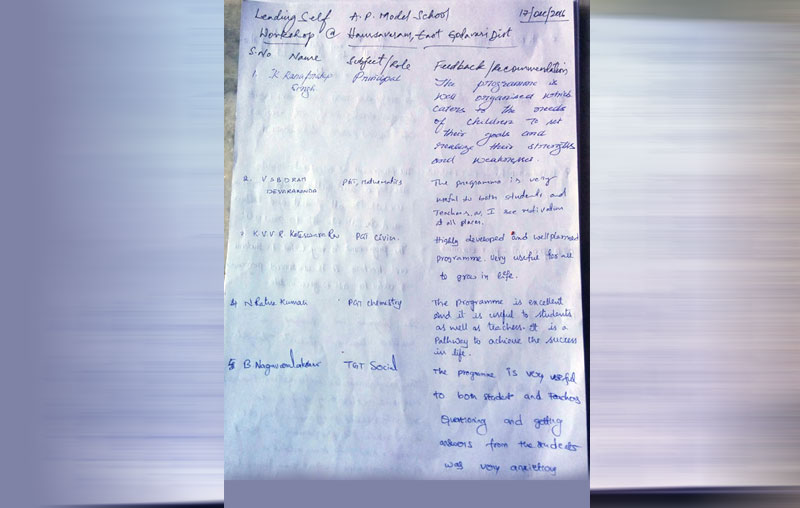 Leading Self A.P. Model School 17/Dec/2016
Workshop @ East Godavari Dist
S.No Name Subject/Role Feedback/Recommendation
1. K Singh Principal The programme is
well organised which
caters to the needs
of children to set
their goals and
their strengths
and weaknesses.
2. V S B D RAM PGT, Mathematics The programme is very
useful to both students and
Teachers, as I see motivation
at all places.
3 K V V R PGT Civics. Highly developed and wellplanned
programme. Very useful for all
to grow in life.
4 N Ratna Kumari PGT chemistry The programme is excellent
and it is useful to students
as well as teachers. It is a
Pathway to achieve the success
in life.
5 B. TGT Social The programme is very useful
to both student and Teachers
Questioning and getting
answers from the students
was very